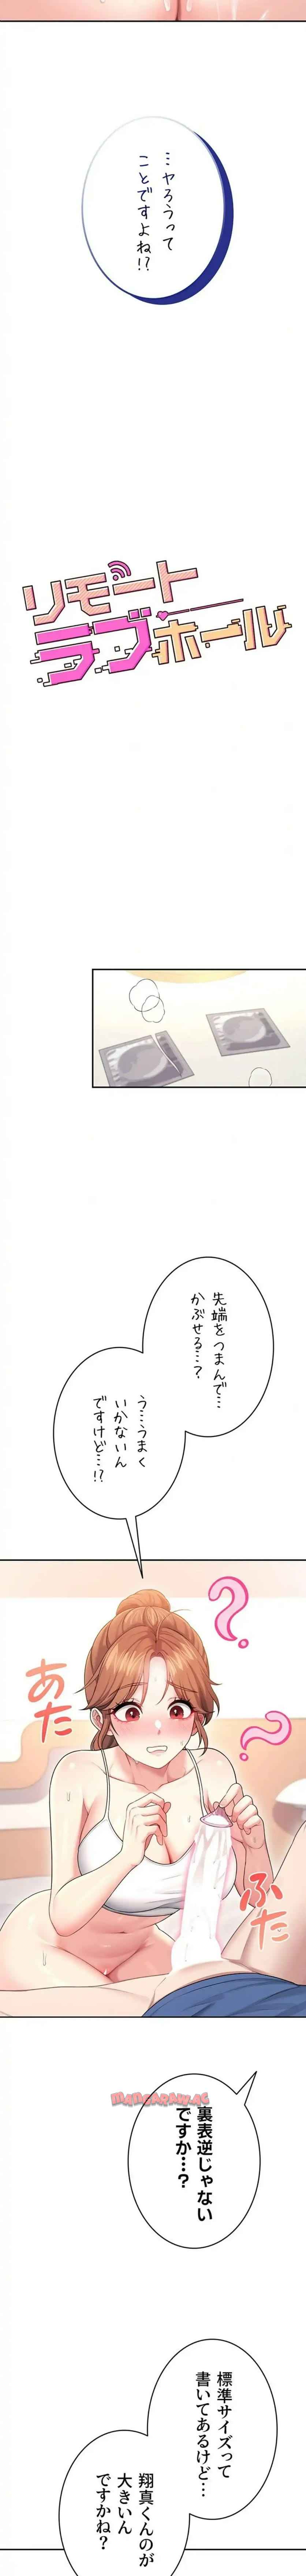 …ヤろうって
ことですよね!?
リモート
ラブホール
先端をつまんで…
かぶせる…?
う…うまく
いかないん
ですけど…!?
?
?
あた
ふた
MANGARAW.AC
裏表逆じゃない
ですか…?
標準サイズって
書いてあるけど…
翔真くんのが
大きいん
ですかね?